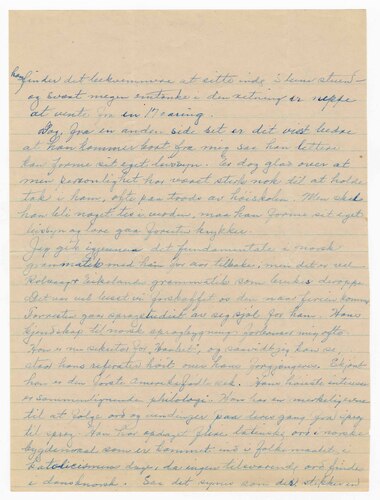 han finder det bekvemmere at sitte inde i lune stuen
og svært megen omtanke i den retning er neppe
at vente fra en 17 aaring.
Dog, fra en anden side set er det vist bedre
at han kommer bort fra mig saa han lettere
kan forme sit eget livssyn. Er dog glad over at
min personlighet har været sterk nok til at holde
tak i ham, ofte paa tvers av høiskolen. Men skal
han bli noget tess i verden, maa han forme sit eget
livssyn og lære gaa foruten krykker.
Jeg gik igjennem det fundamentale i norsk
grammatik med ham for aar tilbake, men det er vel
grammatik som brukes deroppe
Det var vel lusset vi forskaffet os den naar
Forresten gaar sprogstudiet av seg sjøl for han. Hans
kjendskap til norsk sprogbygning forbauser mig ofte
Han er nu sekretær for "Hamlet", og saavidt jeg kan se
staar hans referater høit over hans forgjængeres. Endskjønt
han er den første amerikafødt sek. Hans største interesse
er sammenlignende philologi. Han har en merkelig evne
til at følge ord og vendinger paa deres gang fra sprog
til sprog. Han har opdaget flere latinske ord i norske
bygdemaal som er kommet ind i folkemaalet i
Katolicismens dage, da ingen tilsvarende ord findes
i dansknorsk. Saa det synes som der stikker en